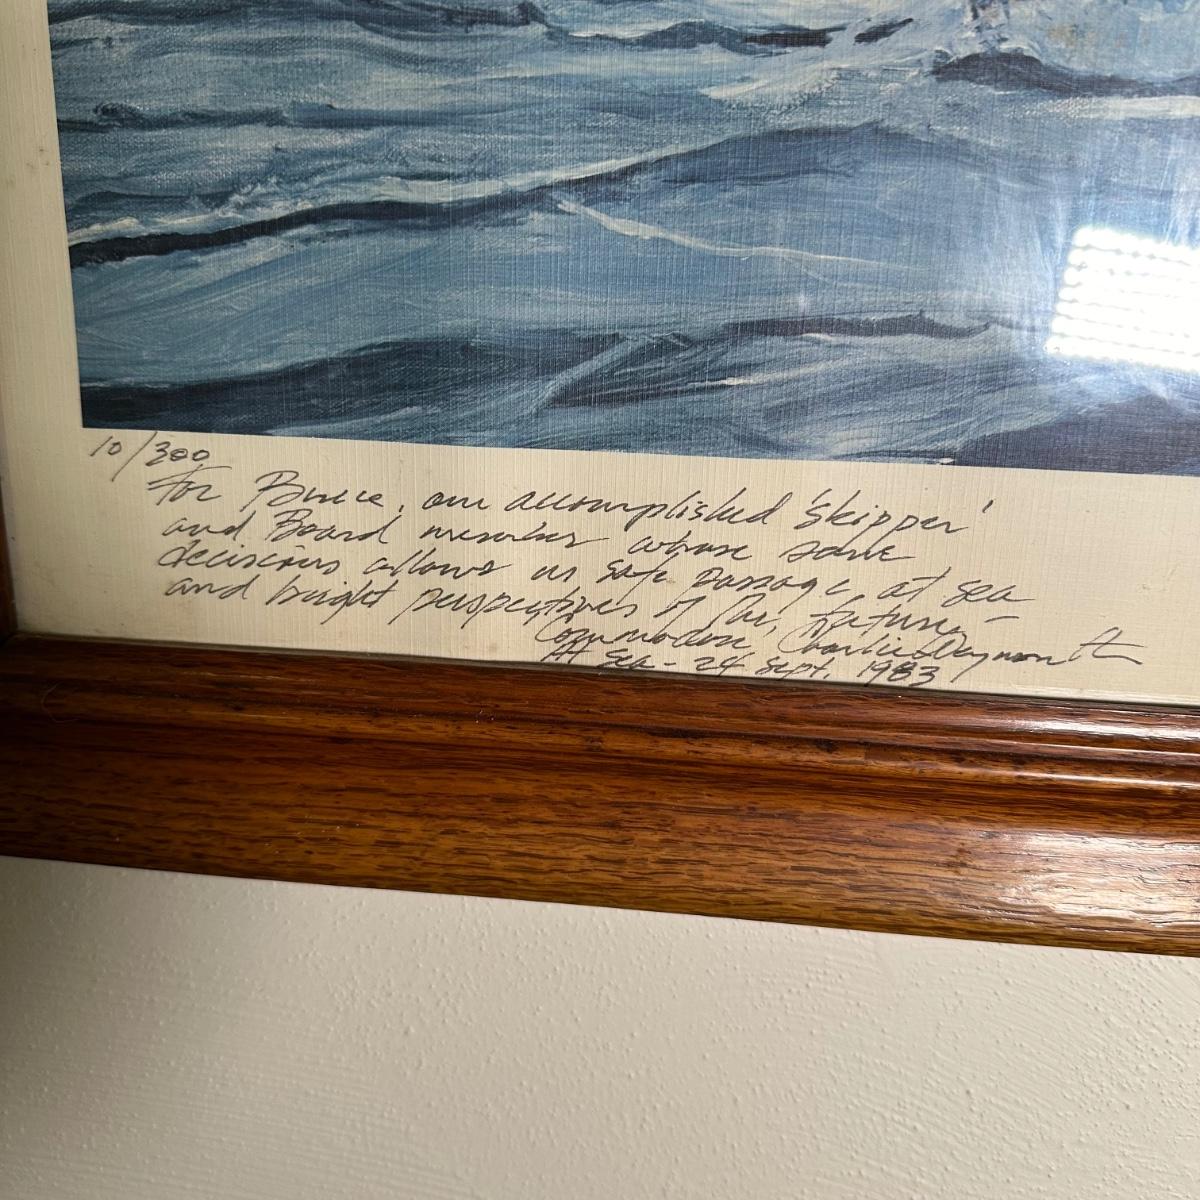 10/300
For Bruce, our accomplished 'Skipper'
and Board member whose sane
decisions allows us safe passage at sea
and bright perspectives of the future –
Commodore, Charlie
At Sea – 24 Sept. 1983